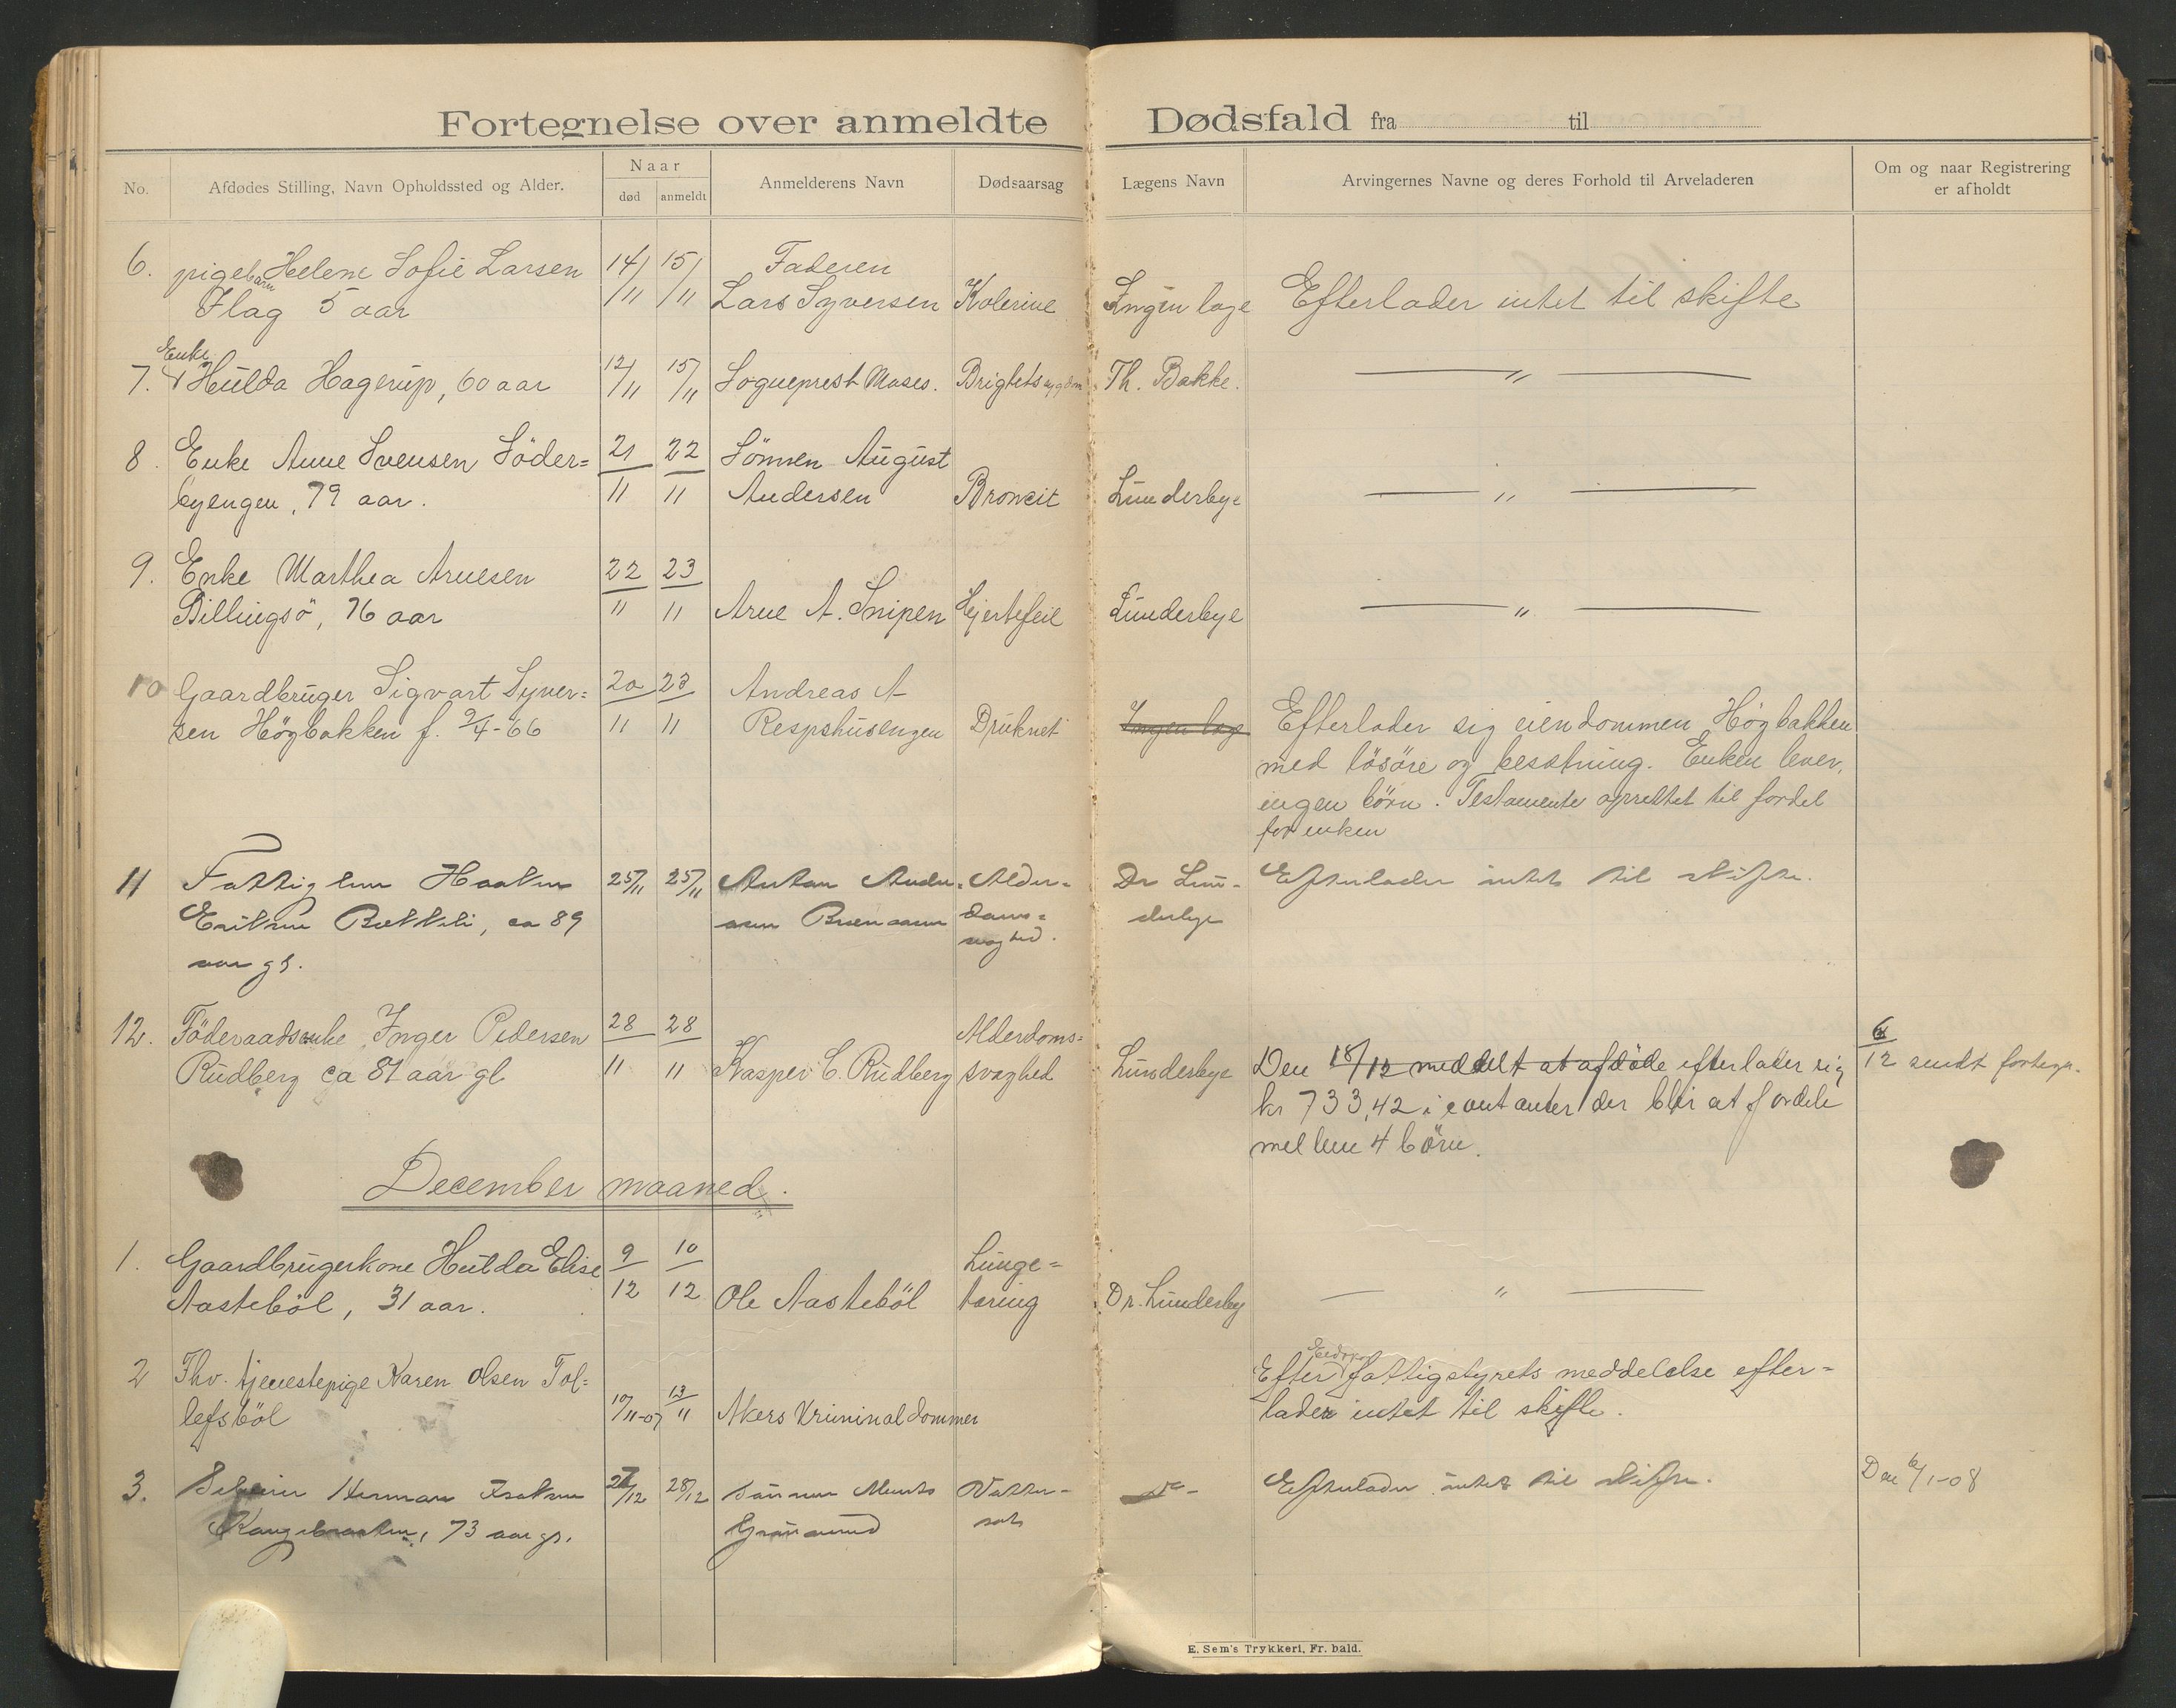 Fortegnelse over anmeldte Dødsfald fra til
No. Afdødes Stilling, Navn Opholdssted og Alder. Naar død anmeldt Anmelderens Navn Dødsaarsag Lægens Navn Arvingernes Navne og deres Forhold til Arveladeren Om og naar Registrering er afholdt
6. pigebarn Helene Sofie Larsen 14/11 15/11 Faderen
Flag 5 aar Lars Syversen Kolerine Ingen læge Efterlader intet til skifte
Enke
7. Hulda Hagerup, 60 aar 12/11 15/11 Sogneprest Moses. Brightssygdom Th. Bakke. — " —
8. Enke Anne Svensen Söder= 21/11 22/11 Sönnen August
byengen, 79 aar. Andersen Broncit Lunderbye — " —
9. Enke Marthea Arnesen 22/11 23/11
Billingsö, 76 aar Arne A. Snipen Hjertefeil Lunderbye — " —
10 Gaardbruger Sigvart Syver= 20/11 23/11 Andreas A
sen Högbakken f. 9/4-66 Respshusengen Druknet Ingen læge Efterlader sig eiendommen Högbakken
med lösöre og besætning. Enken lever,
ingen börn. Testamente oprettet til fordel
for enken
11 Fattiglem Haaken 25/11 25/11 Anton Ander= Alder= Dr Lun= Efterlader intet til skifte.
Eriksen Bækkeli, ca 89 sen doms= derbye
aar gl. svaghed.
12. Föderaadsenke Inger Pedersen 28/11 28/11 Alderdoms=
Rudberg ca 81 aar gl Kasper C. Rudberg svaghed Lunderbye Den 18/12 meddelt at afdöde efterlader sig 6/12 sendt fortegn.
kr 733,42 i contanter der blir at fordele
mellem 4 börn.
December maaned.
1. Gaardbrugerkone Hulda Elise 9/12 10/12 Lunge=
Aasteböl, 31 aar. Ole Aasteböl tæring Dr. Lunderby — " —
2 Fhv. tjenestepige Karen Olsen Tol= 10/11-07 13/11 Efter fattigstyrets meddelelse efter=
lefsböl Akers Kriminaldommer lader intet til skifte.
3. Herman Isaksen 27/12 28/12 Sönnen Vatter= Do- Efterlader intet til skifte. Den 6/1-08
73 aar gl. sot
E. Sem's Trykkeri, Fr. hald.